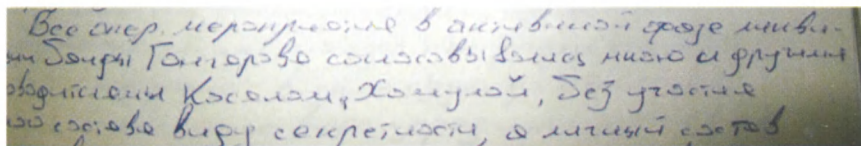 Все опер. мероприятия в активной фазе ликви-
ции банды Гончарова согласовывались мною и другими
водителями Косолом, Хомулой, без участия
ного состава ввиду секретности, а личный состав